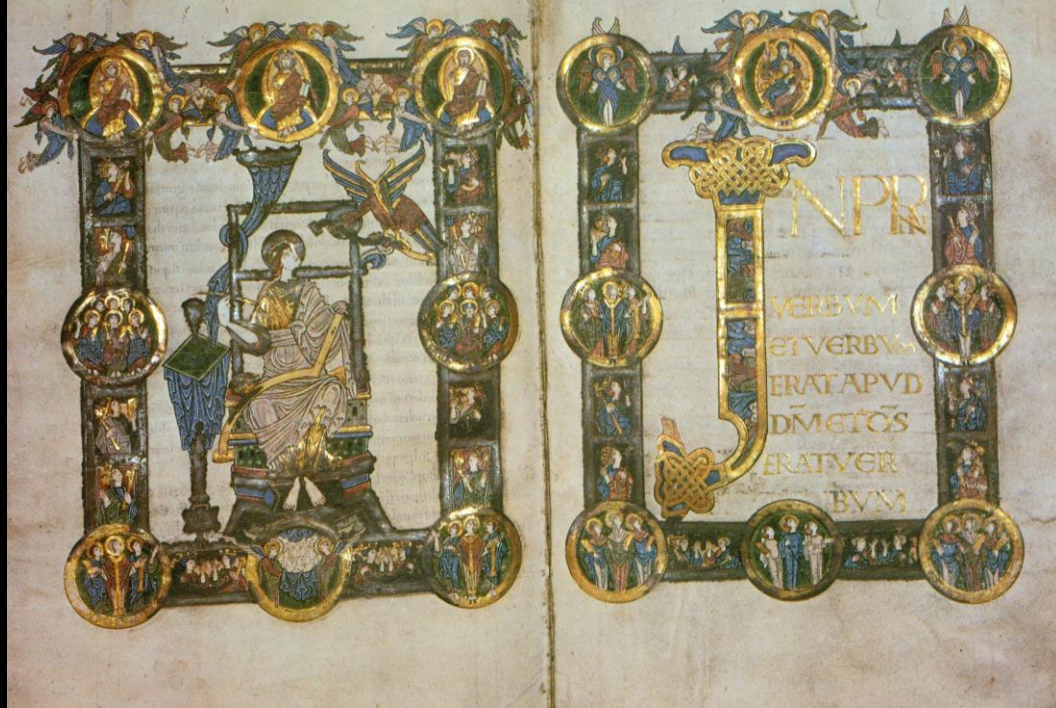 INPRIN
VERBVM
ETVERBVM
ERATAPVD
DM̄ETD̄S
ERATVER
BVM